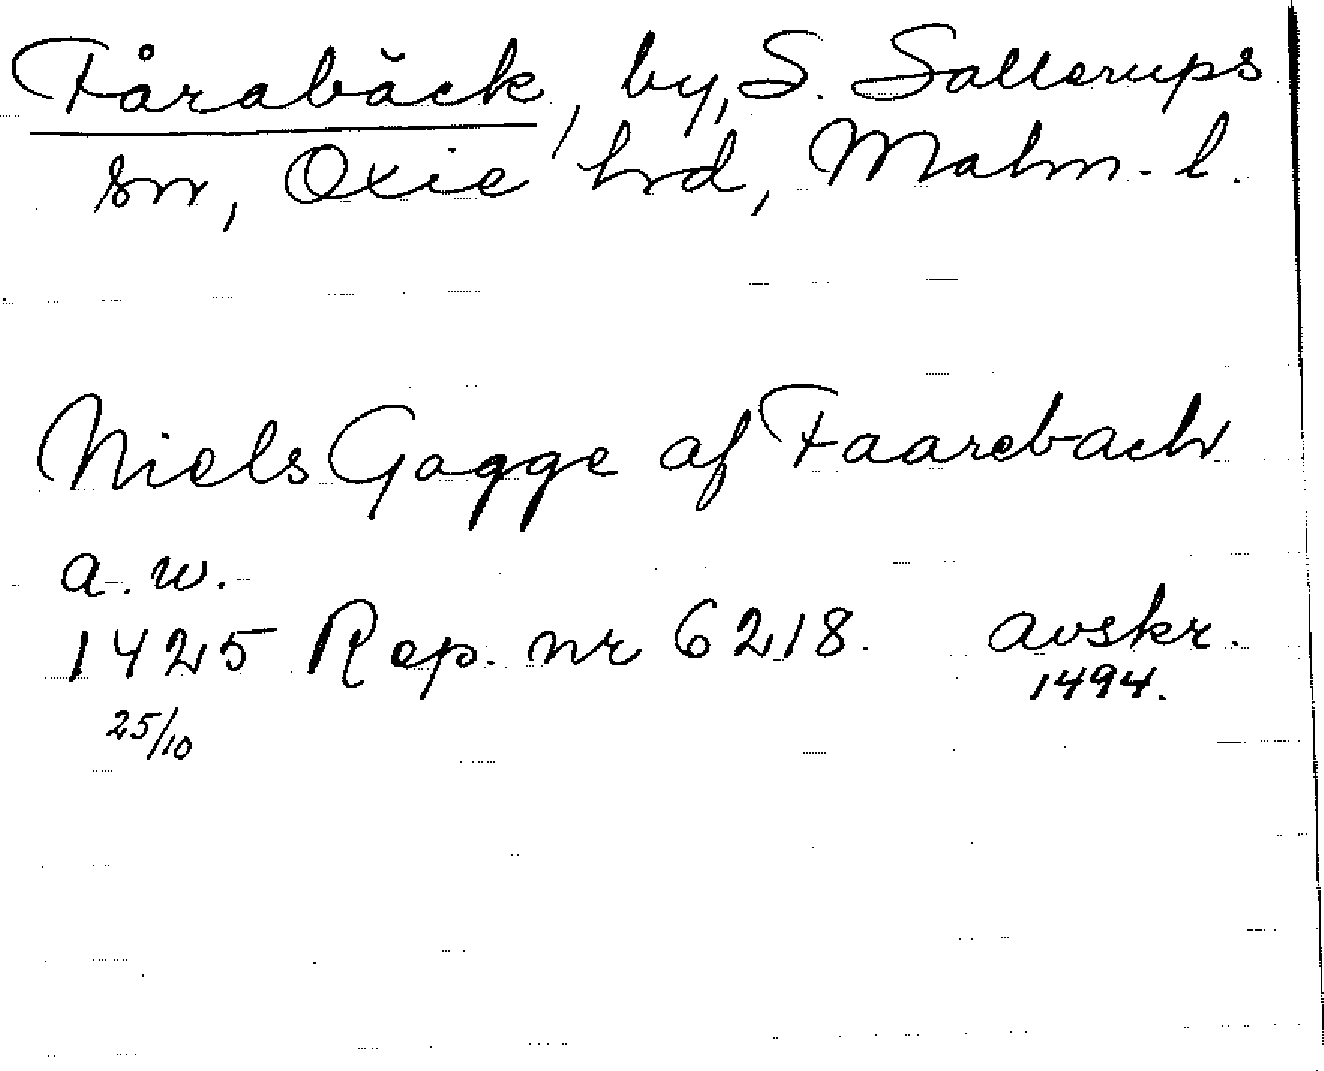 Fårabäck, by, S. Sallerups
sn, Oxie hrd, Malm. l.
Niels Gagge af Faarebach
a. w.
1425 Rep. nr 6218. avskr.
25/10 1494.